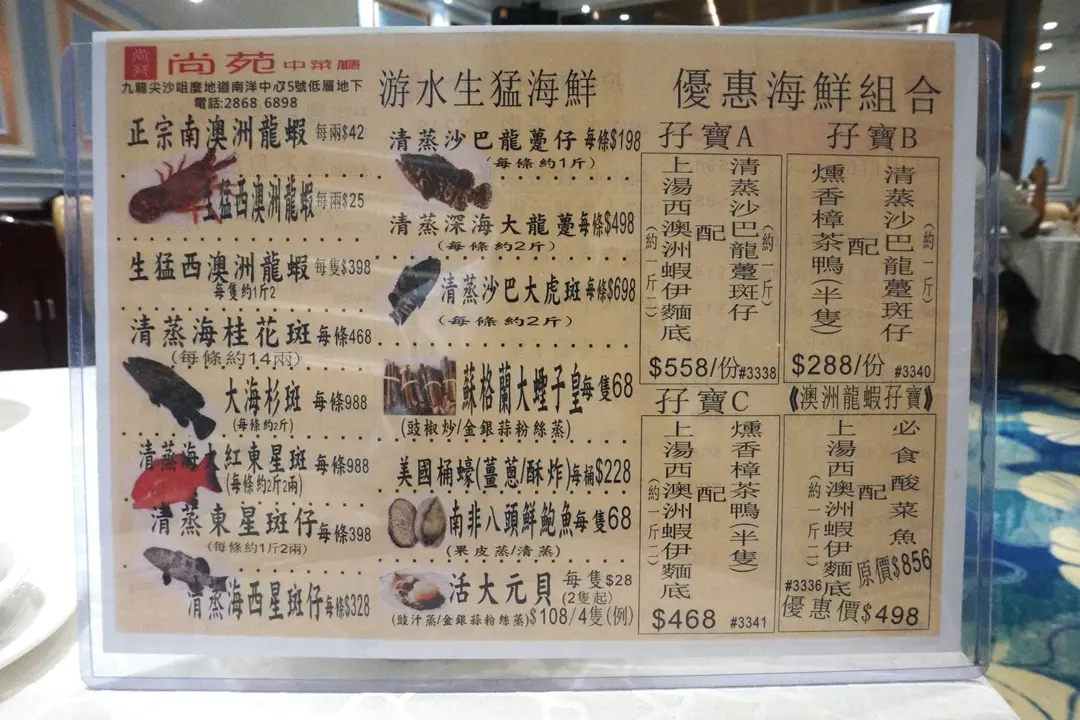 尚苑
尚苑中菜廳
九龍尖沙咀麼地道南洋中心5號低層地下
電話:2868 6898
游水生猛海鮮
優惠海鮮組合
正宗南澳洲龍蝦 每兩$42
生猛西澳洲龍蝦 每兩$25
生猛西澳洲龍蝦 每隻$398
每隻約1斤2
清蒸海桂花斑 每條468
(每條約14兩)
大海杉斑 每條988
(每條約2斤)
清蒸海大紅東星斑 每條988
(每條約2斤2兩)
清蒸東星斑仔 每條398
(每條約1斤2兩)
清蒸海西星斑仔 每條$328
清蒸沙巴龍躉仔 每條$198
(每條約1斤)
清蒸深海大龍躉 每條$498
(每條約2斤)
清蒸沙巴大虎斑 每條$698
(每條約2斤)
蘇格蘭大蟶子皇 每隻68
(豉椒炒/金銀蒜粉絲蒸)
美國桶蠔(薑蔥/酥炸) 每桶$228
南非八頭鮮鮑魚 每隻68
(果皮蒸/清蒸)
活大元貝 每隻$28
(2隻起)
(豉汁蒸/金銀蒜粉絲蒸) $108/4隻(例)
孖寶A
清蒸沙巴龍躉斑仔
(約一斤)
配
上湯西澳洲蝦伊麵底
(約一斤二)
$558/份 #3338
孖寶B
清蒸沙巴龍躉斑仔
(約一斤)
配
燻香樟茶鴨(半隻)
$288/份 #3340
孖寶C
燻香樟茶鴨(半隻)
配
上湯西澳洲蝦伊麵底
(約一斤二)
$468 #3341
《澳洲龍蝦孖寶》
必食酸菜魚
配
上湯西澳洲蝦伊麵底
(約一斤二)
原價$856
#3336
優惠價$498